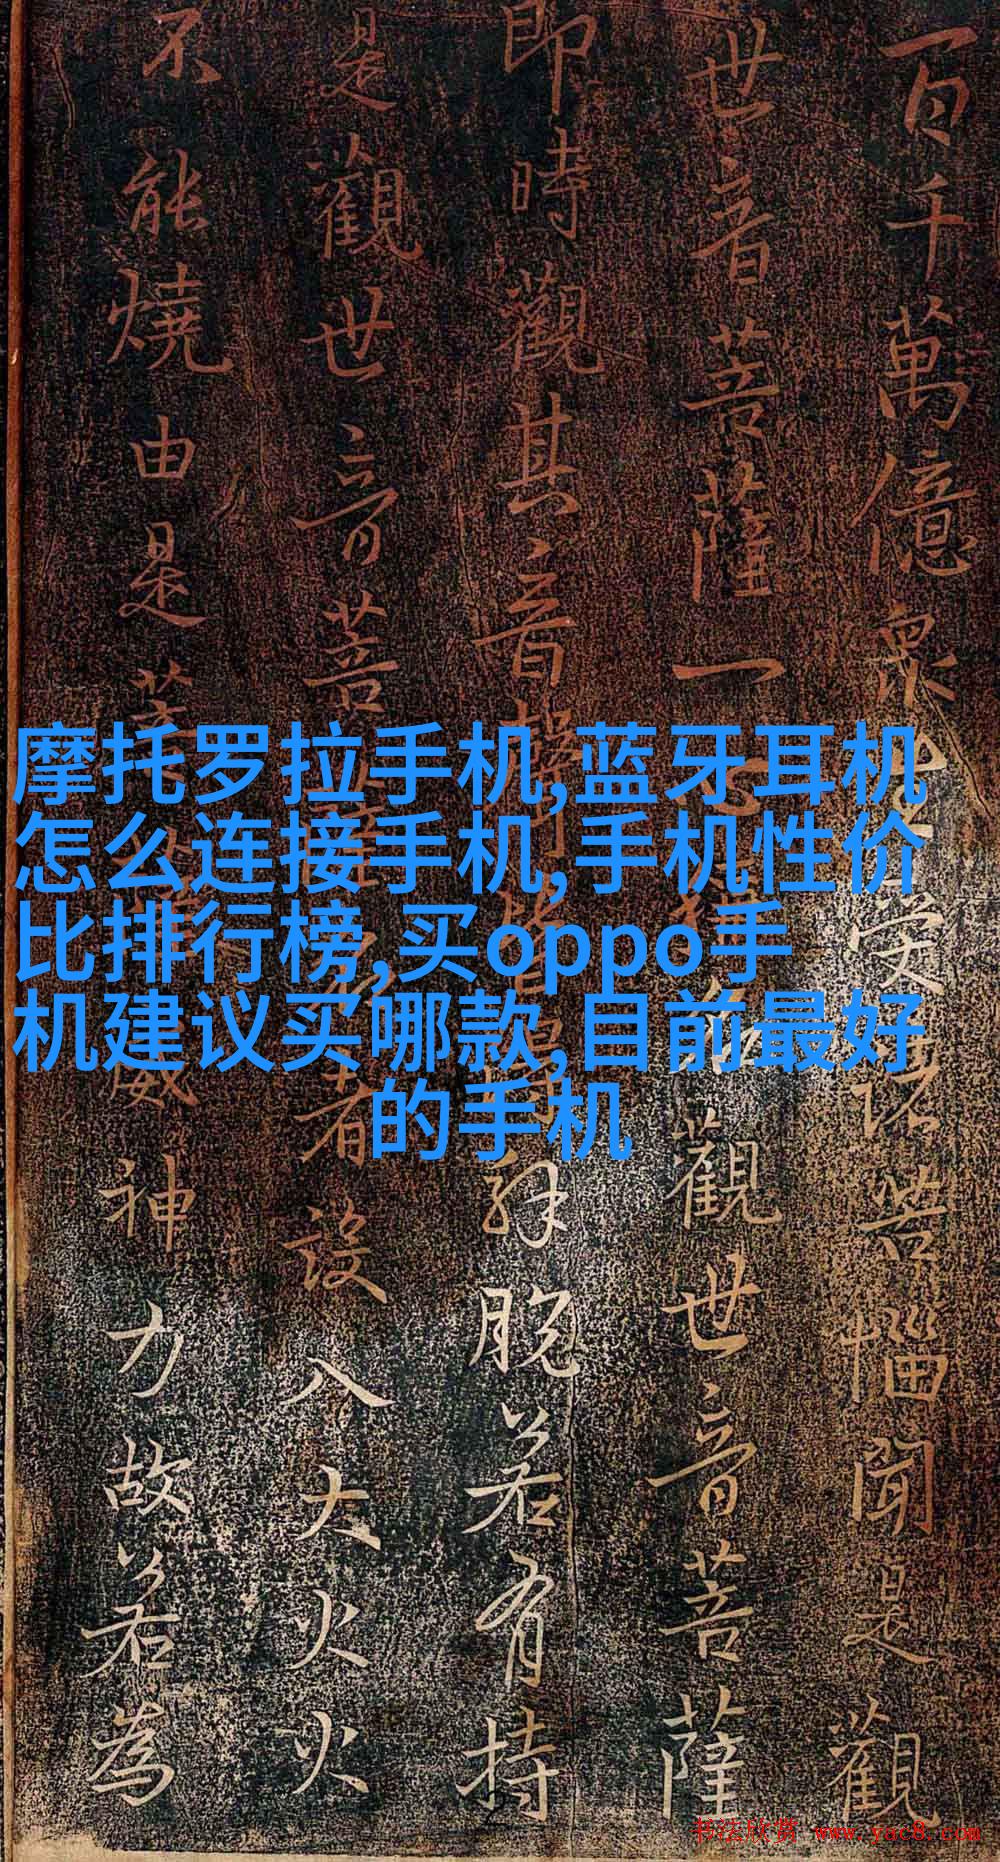 百千萬億眾生受諸苦惱聞是觀
世音菩薩一心稱名觀世音菩薩
即時觀其音聲皆得解脫若有持
是觀世音菩薩名者設入大火火
不能燒由是菩薩威神力故若為
摩托罗拉手机,蓝牙耳机
怎么连接手机,手机性价
比排行榜,买oppo手
机建议买哪款,目前最好
的手机
书法欣赏 www.yac8.com